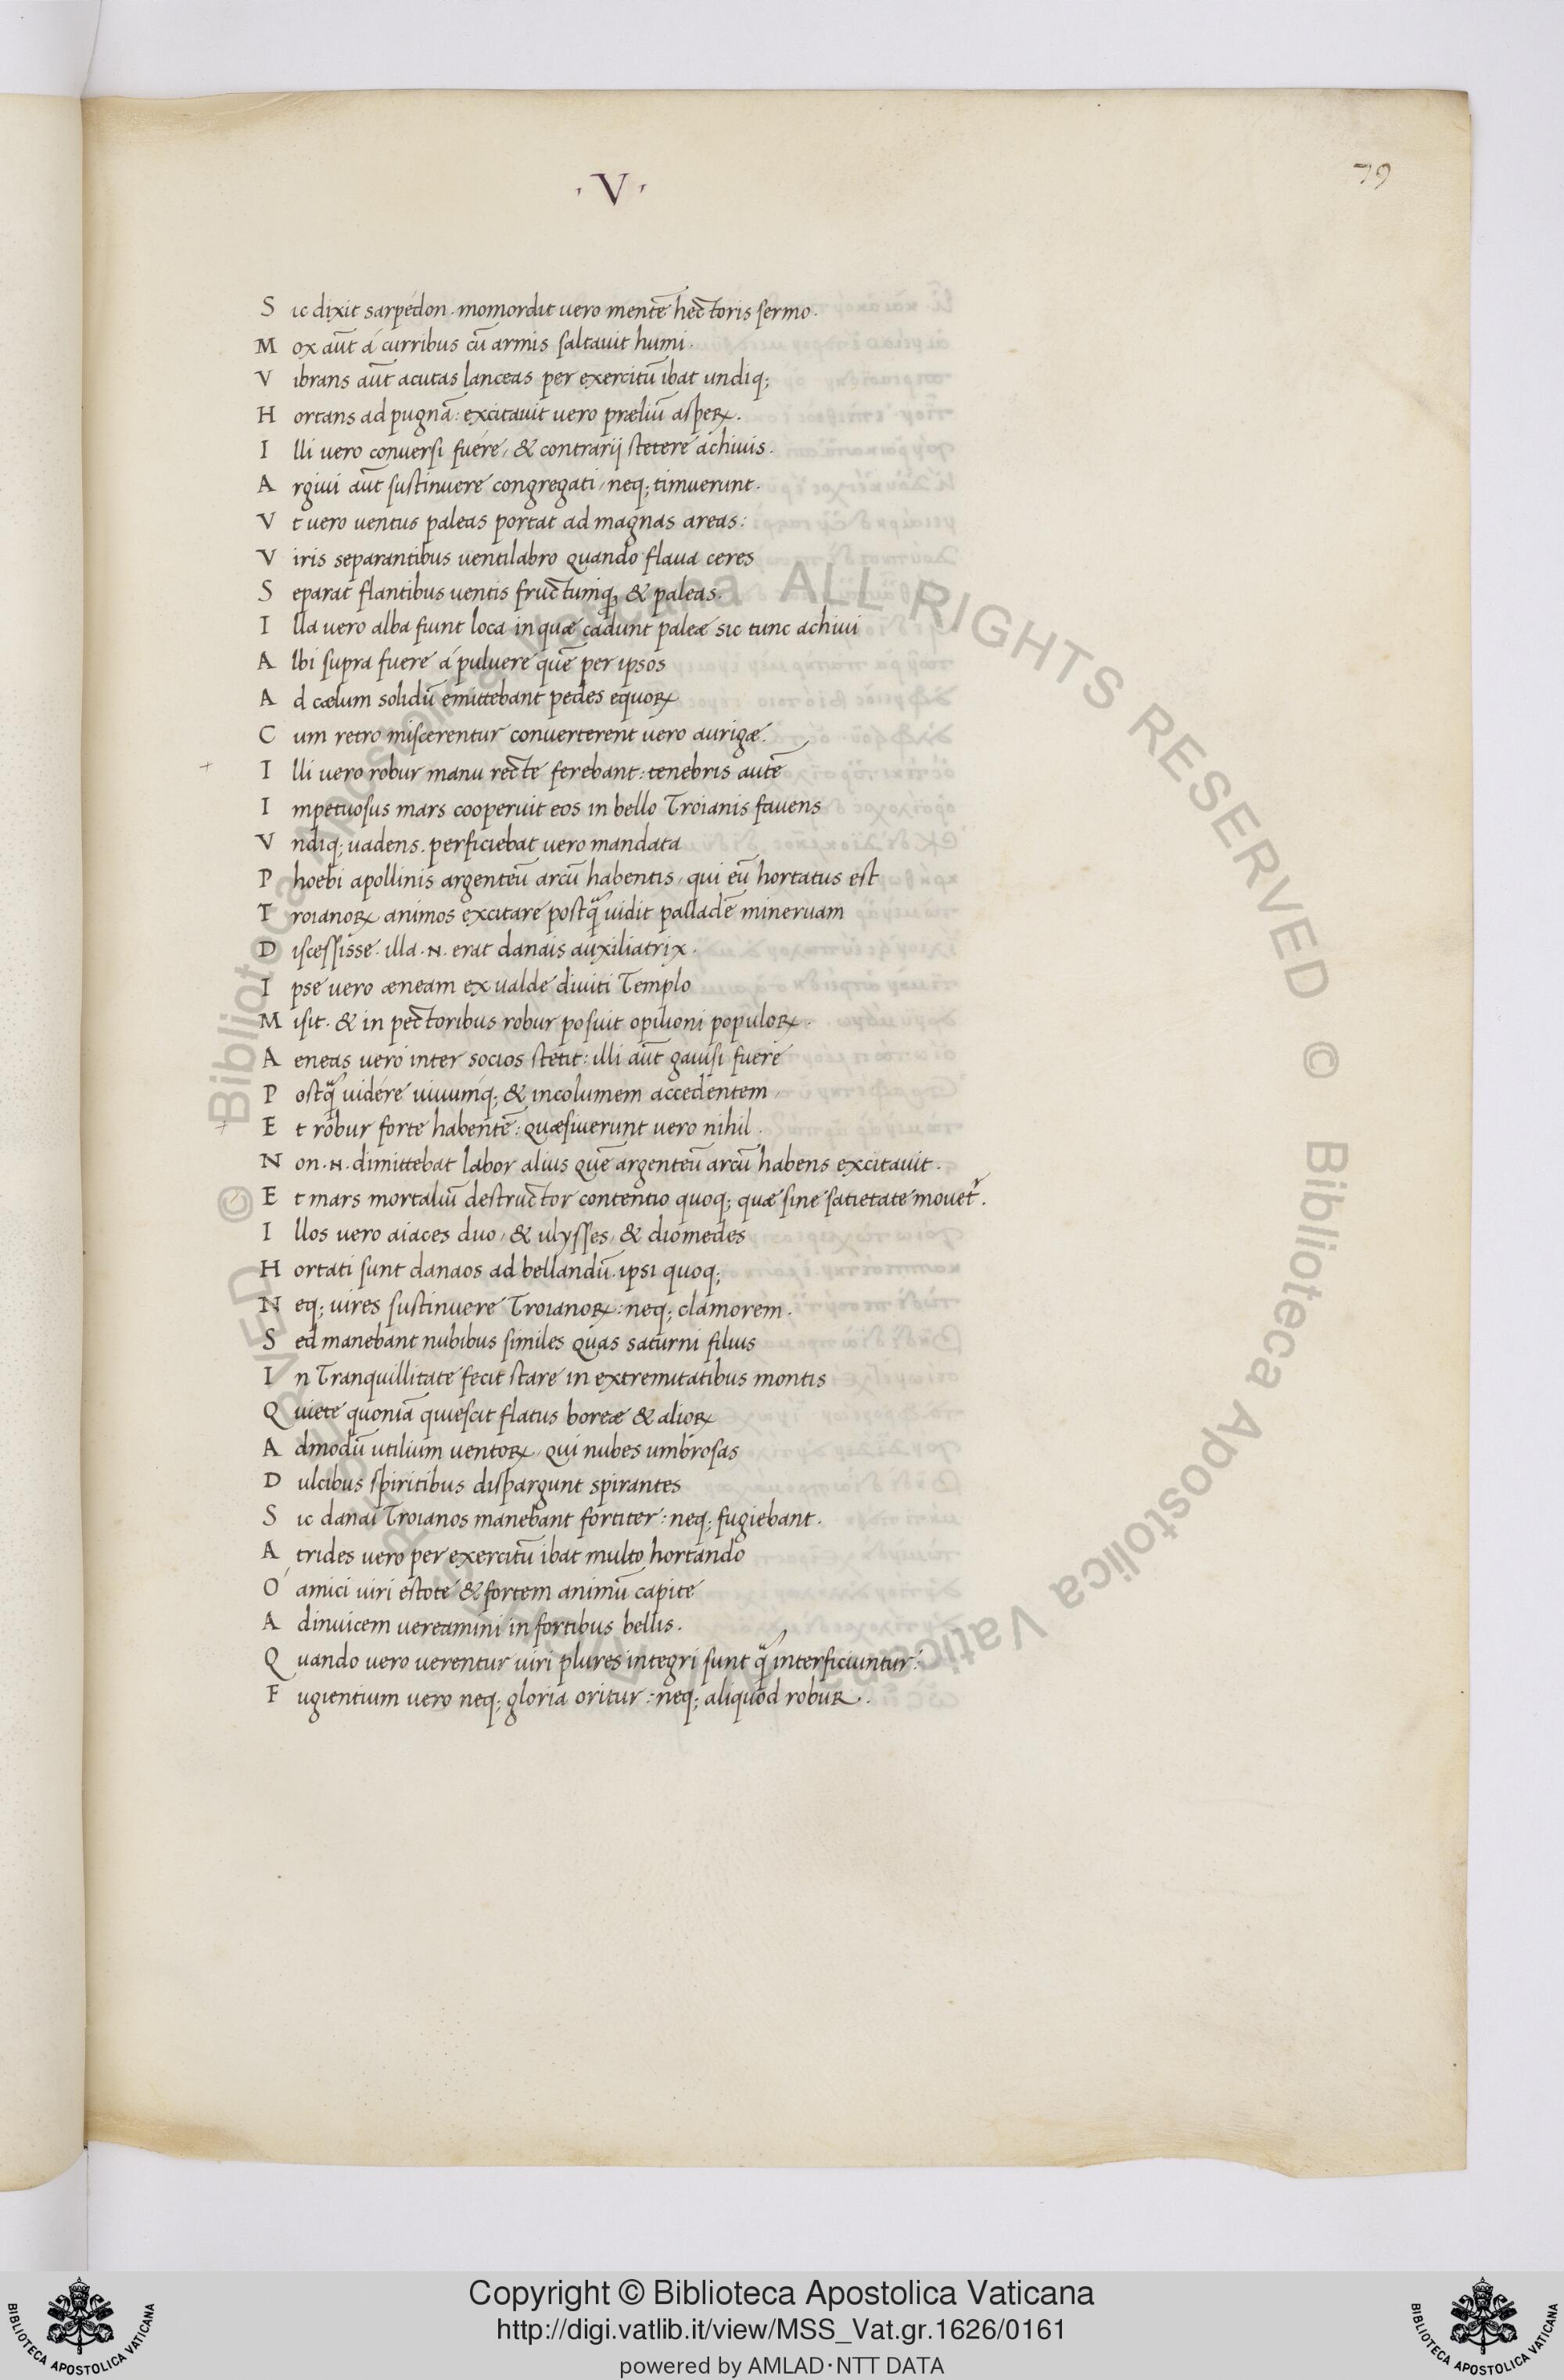 · V ·
79
Sic dixit sarpedon. momordit uero mentē hectoris sermo.
Mox aūt á curribus cū armis saltauit humi.
Vibrans aūt acutas lanceas per exercitū ibat undiq;
Hortans ad pugnā: excitauit uero præliū aspeꝝ.
Illi uero conuersi fuere, & contrarij stetere achiuis.
Argiui aūt sustinuere congregati, neq; timuerunt.
Vt uero uentus paleas portat ad magnas areas:
Viris separantibus uentilabro quando flaua ceres
Separat flantibus uentis fructumq; & paleas.
Illa uero alba fiunt loca in quæ cadunt paleæ sic tunc achiui
Albi supra fuere á puluere quē per ipsos
Ad cælum solidū emittebant pedes equoꝝ
Cum retro miscerentur conuerterent uero aurigæ.
Illi uero robur manu recte ferebant: tenebris autē
Impetuosus mars cooperuit eos in bello Troianis fauens
Vndiq; uadens. perficiebat uero mandata
Phoebi apollinis argenteū arcū habentis, qui eū hortatus est
Troianoꝝ animos excitare postq̄ uidit palladē mineruam
Discessisse. illa .N. erat danais auxiliatrix.
Ipse uero æneam ex ualde diuiti Templo
Misit. & in pectoribus robur posuit opilioni populoꝝ.
Aeneas uero inter socios stetit: illi aūt gauisi fuere
Postq̄ uidére uiuumq; & incolumem accedentem,
Et robur forte habentē: quæsiuerunt uero nihil.
Non .N. dimittebat labor alius quē argenteū arcū habens excitauit.
Et mars mortaliū destructor contentio quoq; quæ sine satietate mouet᷑.
Illos uero aiaces duo, & ulysses, & diomedes
Hortati sunt danaos ad bellandū. ipsi quoq;
Neq; uires sustinuere Troianoꝝ: neq; clamorem.
Sed manebant nubibus similes quas saturni filius
In Tranquillitate fecit stare in extremitatibus montis
Quiete quoniā quiescit flatus boreæ & alioꝝ
Admodū utilium uentoꝝ, qui nubes umbrosas
Dulcibus spiritibus dispargunt spirantes
Sic danai Troianos manebant fortiter: neq; fugiebant.
Atrides uero per exercitū ibat multo hortando
O' amici uiri estote & fortem animū capite
Adinuicem uereamini in fortibus bellis.
Quando uero uerentur uiri plures integri sunt q̄ interficiuntur:
Fugientium uero neq; gloria oritur: neq; aliquod robur.
© Biblioteca Apostolica Vaticana ALL RIGHTS RESERVED © Biblioteca Apostolica Vaticana
Copyright © Biblioteca Apostolica Vaticana
http://digi.vatlib.it/view/MSS_Vat.gr.1626/0161
powered by AMLAD·NTT DATA
BIBLIOTECA APOSTOLICA VATICANA
BIBLIOTECA APOSTOLICA VATICANA